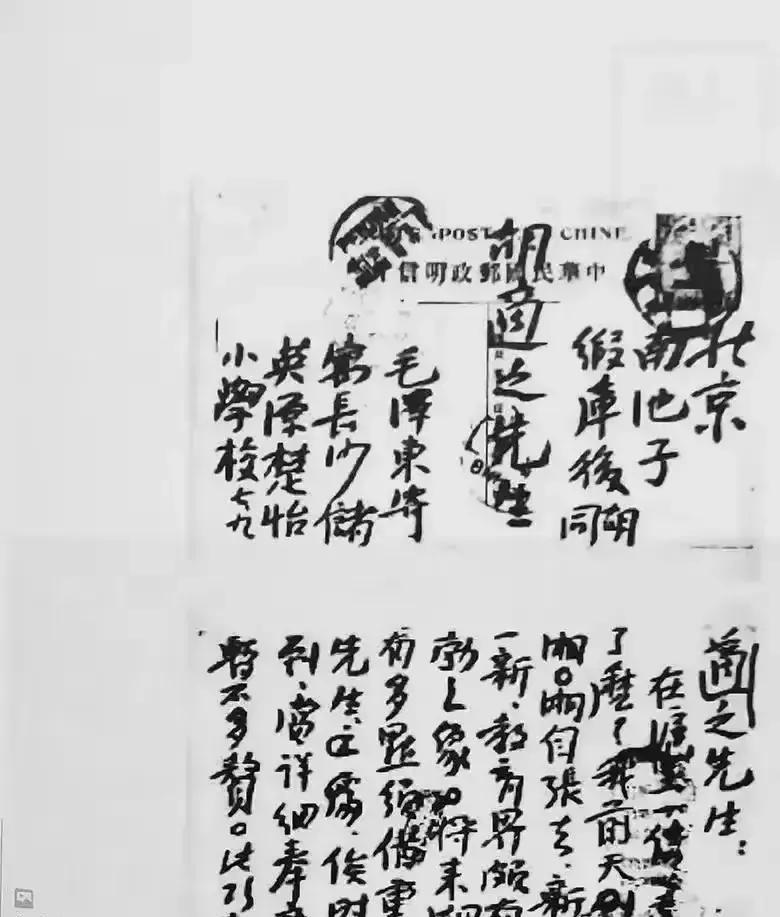 POST CHINE
中華民國郵政明信
北京
南池子
緞庫後胡同
胡適之先生
毛澤東寄
寓長沙儲
英源楚怡
小學校七九
適之先生：
在滬上一信
了麼了我前天到
湘。湘自張去，新
一新，教育界頗有
勃之象。將來湖
有多點須借重
先生之處，俟時
到，當詳細奉
暫不多贅。此